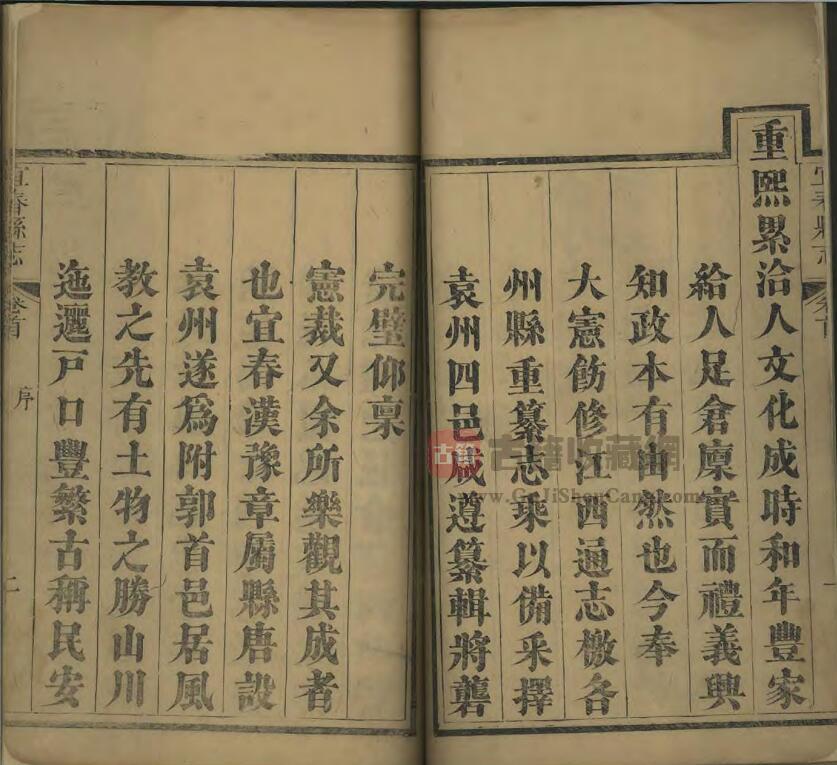 宜春縣志 卷首
重熙累洽人文化成時和年豐家
給人足倉廩實而禮義興
知政本有由然也今奉
大憲飭修江西通志檄各
州縣重纂志乘以備采擇
袁州四邑咸遵纂輯將龔
完璧仰稟
憲裁又余所樂觀其成者
也宜春漢豫章屬縣唐設
袁州遂爲附郭首邑居風
教之先有土物之勝山川
迤邐戸口豐繁古稱民安
宜春縣志 卷首 序 二
古籍收藏網
www.GuJiShouCang.com